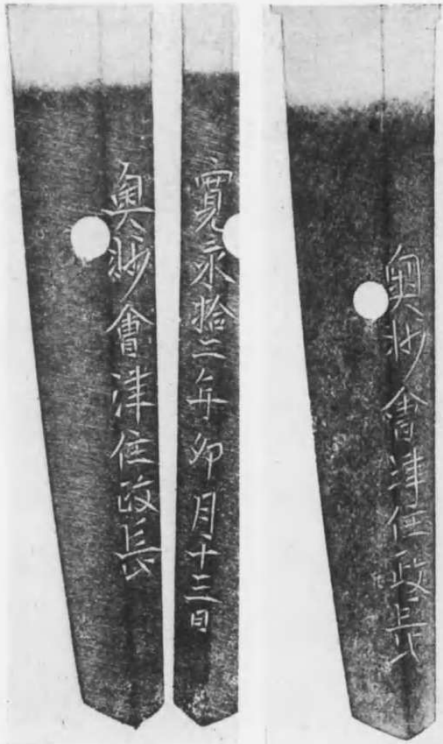 奥州會津住政長
寛永拾二年卯月十三日
奥州會津住政長